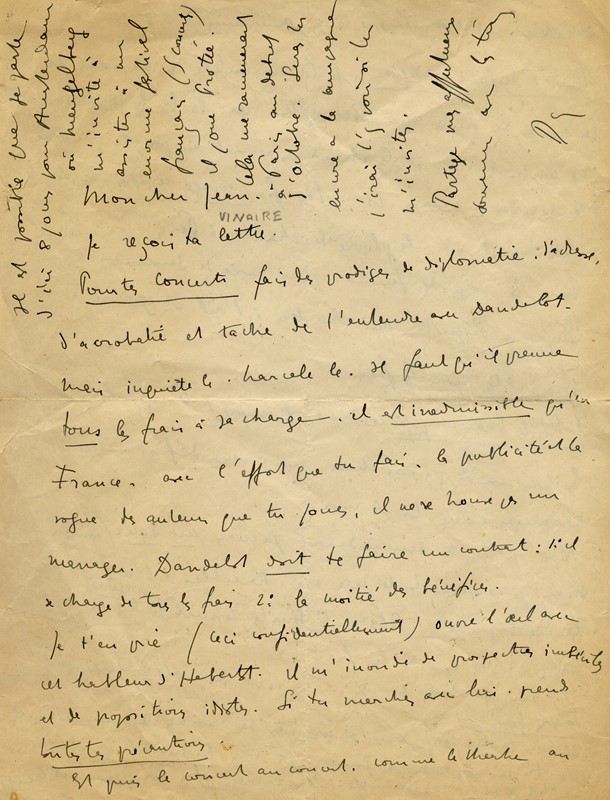 Mon cher Jean.
VINAIRE
Je reçois ta lettre.
Pour tes concerts fais des prodiges de diplomatie, d'adresse,
d'acrobatie et tache de t'entendre avec Dandelot.
mais inquiète le. harcele le. il faut qu'il prenne
tous les frais à sa charge. il est inadmissible qu'en
France. avec l'effort que tu fais. la publicité et la
vogue des auteurs que tu joues, il ne se trouve pas un
manager. Dandelot doit te faire un contrat : 1: il
se charge de tous les frais 2: la moitié des bénéfices.
Je t'en prie (ceci confidentiellement) ouvre l'œil avec
cet hableur d'Hebertot. il m'inonde de prospectus imbéciles
et de propositions idiotes. Si tu marches avec lui. prends
toutes tes précautions.
Et puis le concert au concert. comme le théatre au
il est possible que je parte
d'ici 8 jours pour Amsterdam
où Mengelberg
m'invite à
assister à un
enorme festival
français
il joue Protée.
Cela me ramenerait
à Paris au debut
d'octobre. Sinon
encore à la campagne
j'irai t'y voir si tu
m'invites.
Partage mes affectueux